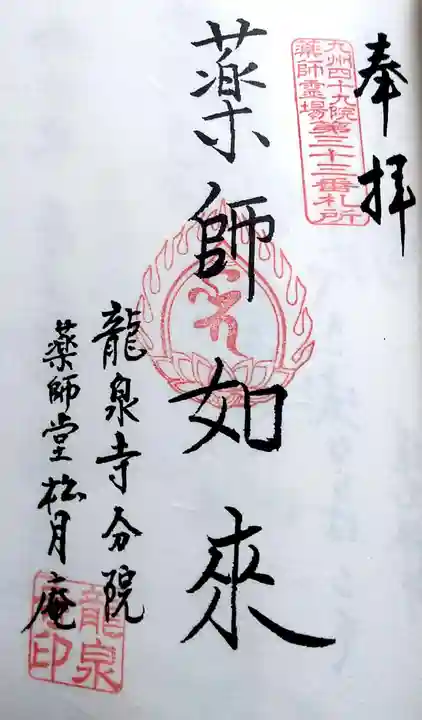 奉拝
九州四十九院
薬師霊場第三十三番札所
薬師如來
龍泉寺分院
薬師堂松月庵
龍泉
庵印